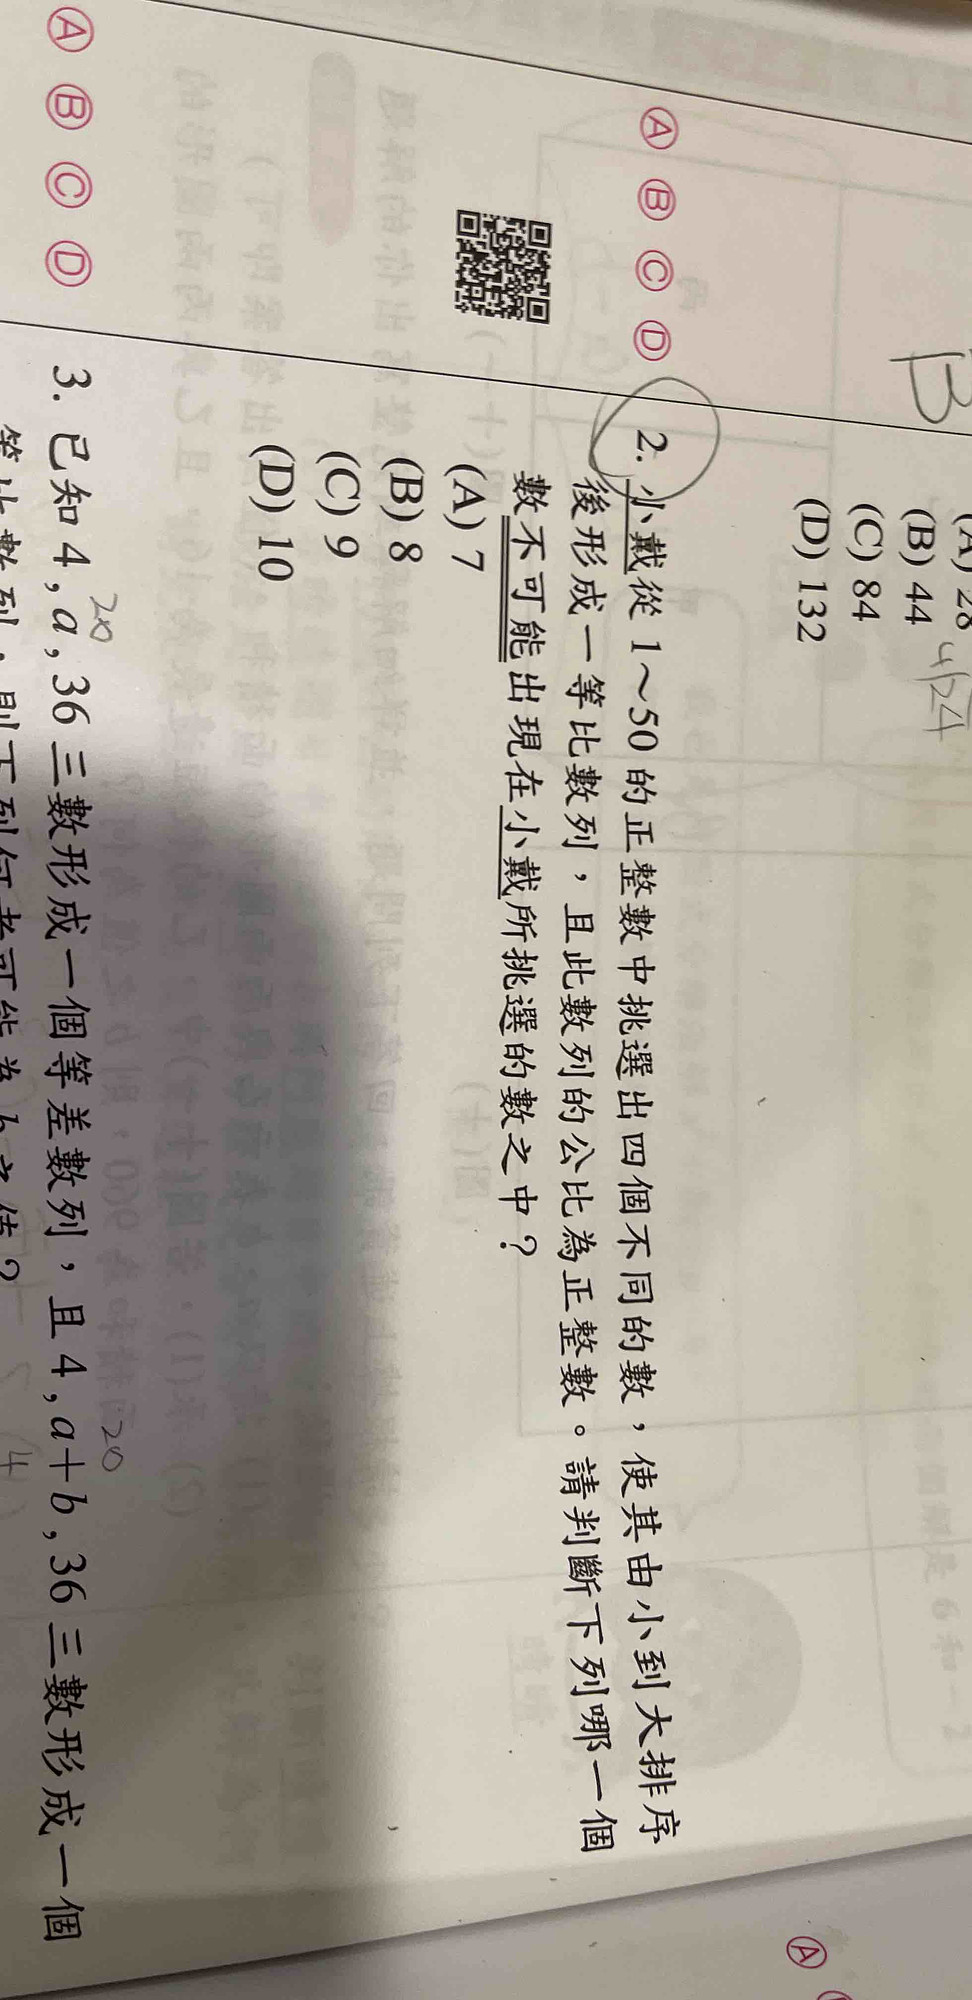 (B) 44
4/24
(C) 84
(D) 132
B
Ⓐ Ⓑ Ⓒ Ⓓ
2. 小戴從 1～50 的正整數中挑選出四個不同的數，使其由小到大排序
後形成一等比數列，且此數列的公比為正整數。請判斷下列哪一個
數不可能出現在小戴所挑選的數之中？
(A) 7
(B) 8
(C) 9
(D) 10
Ⓐ Ⓑ Ⓒ Ⓓ
20
20
3. 已知 4 , a , 36 三數形成一個等差數列，且 4 , a＋b , 36 三數形成一個
等比數列，則下列何者可能為 b 之值？
Ⓐ